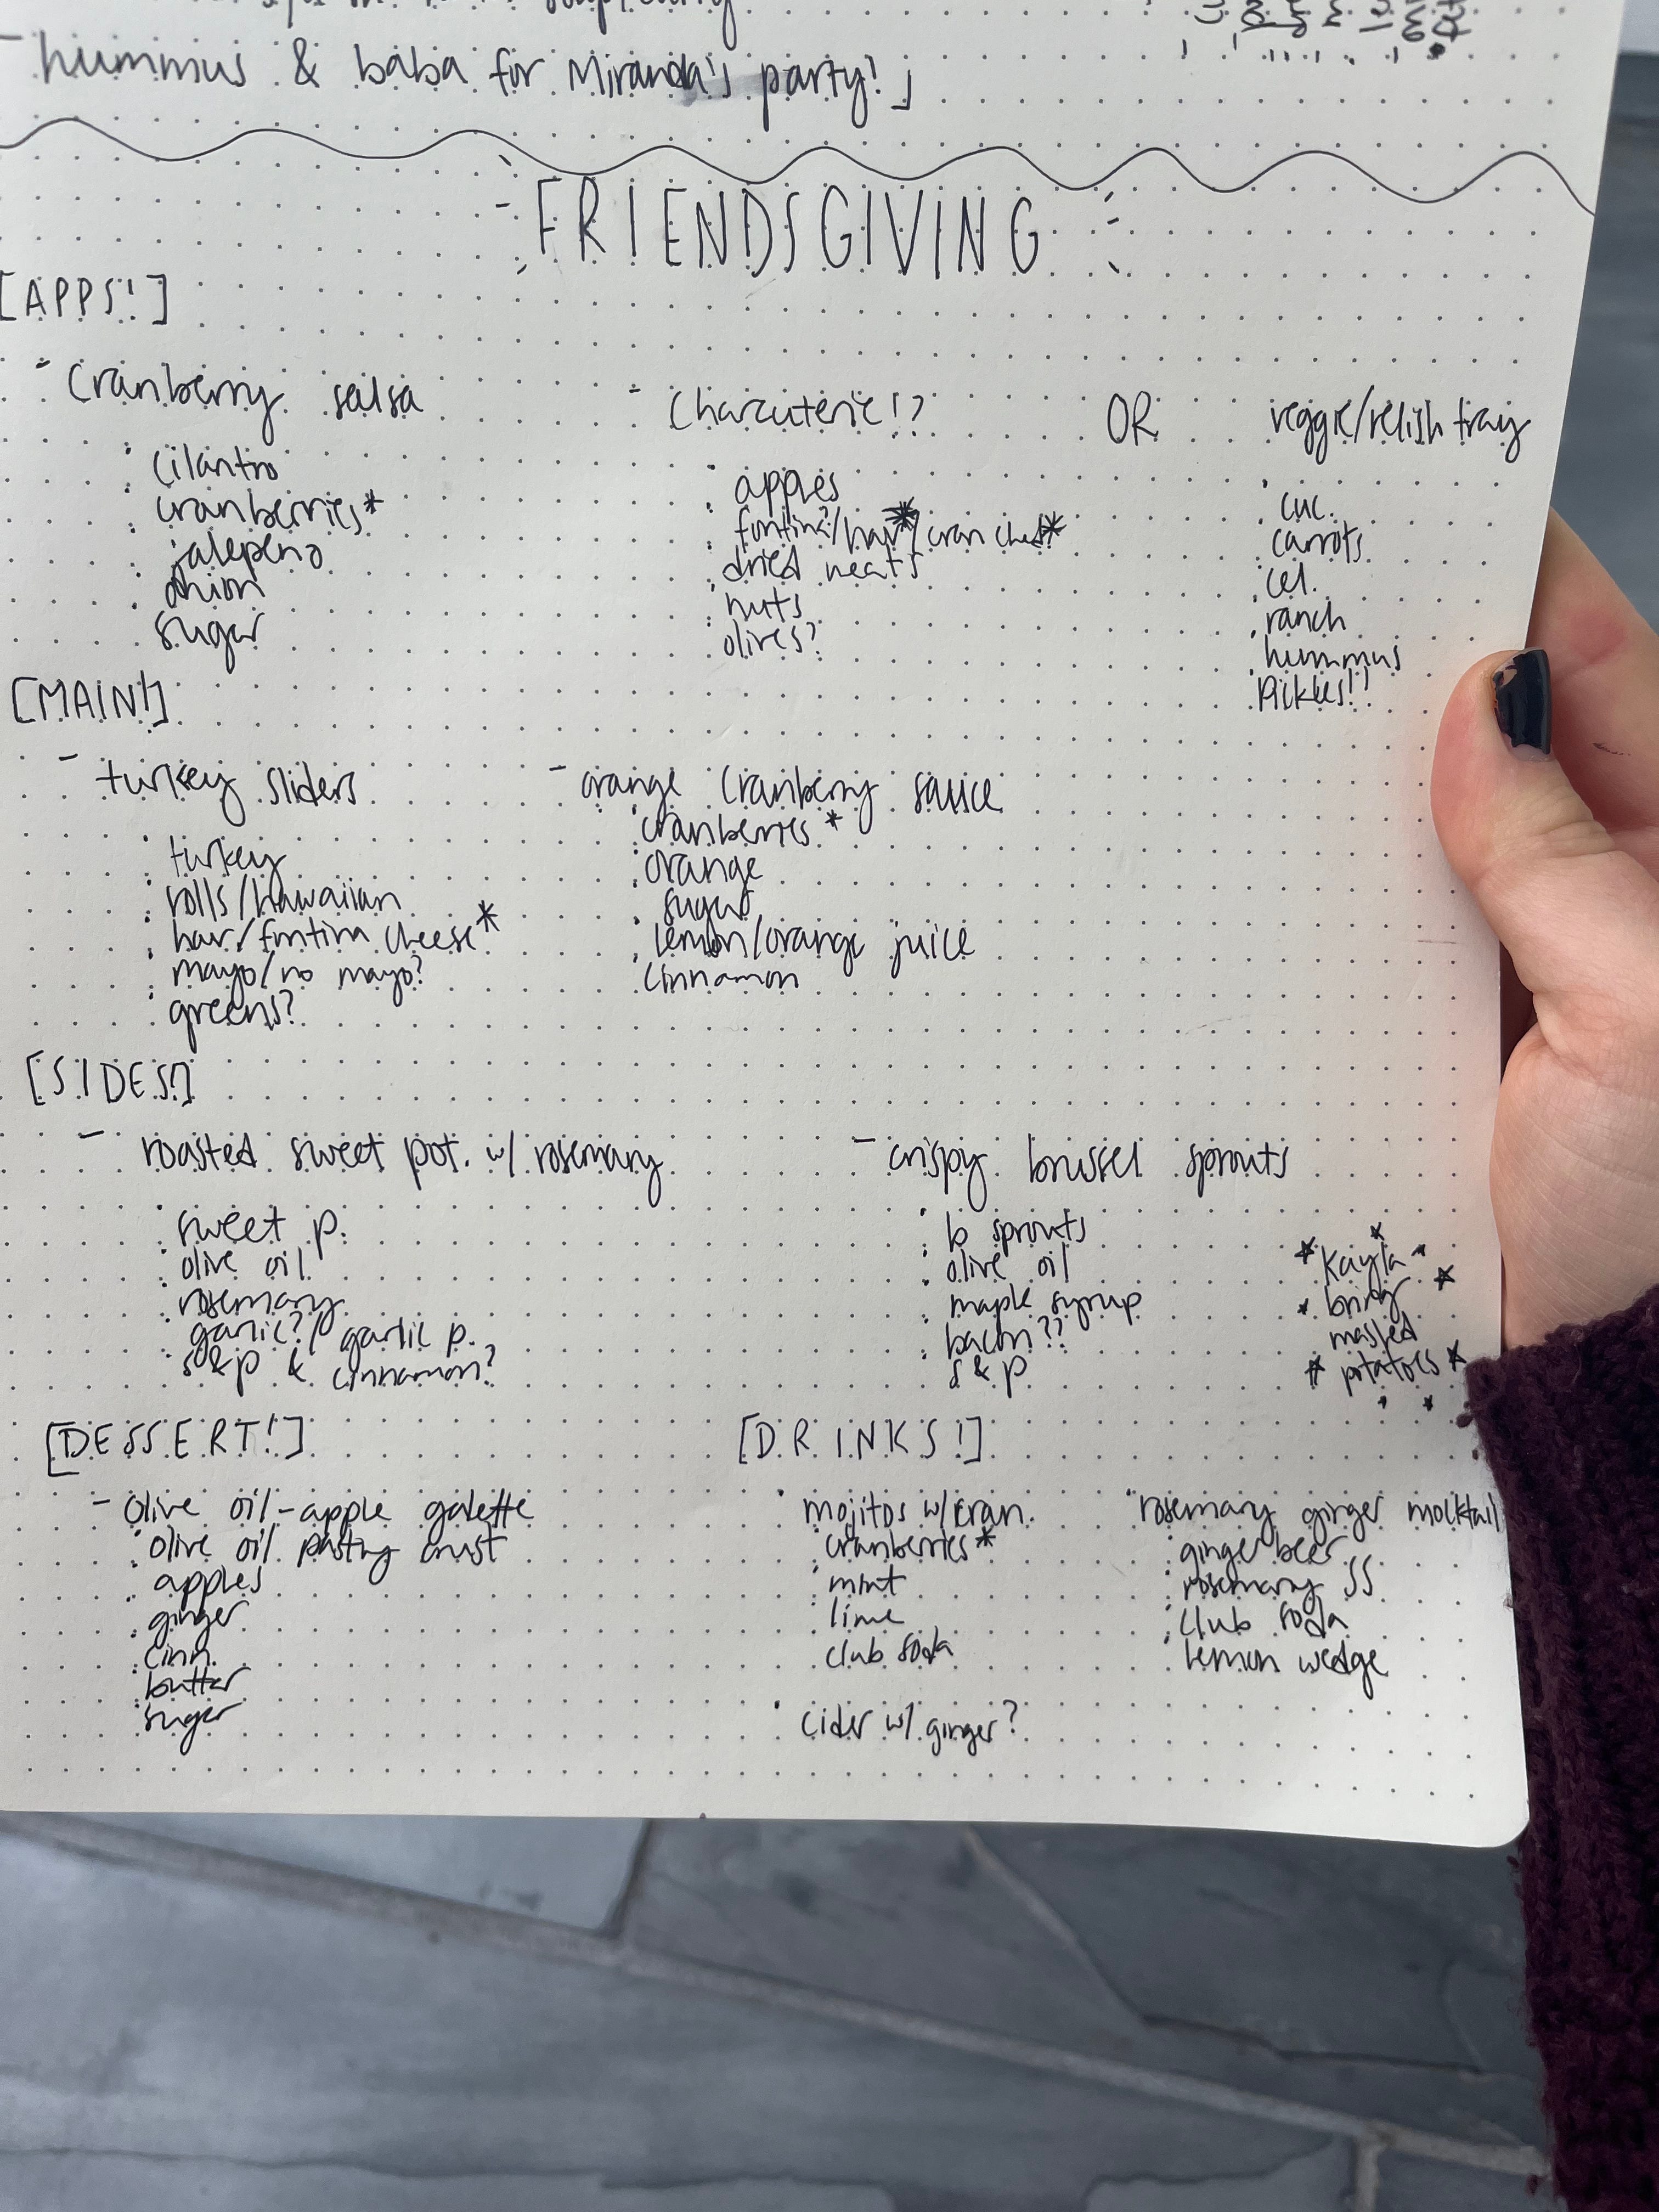 hummus & baba for Miranda's party!
FRIENDSGIVING
[APPS!]
- Cranberry salsa
cilantro
cranberries*
jalepeno
onion
sugar
- Charcuterie!?
apples
fontina/hav*/cran ched*
dried meats
nuts
olives?
OR
veggie/relish tray
cuc.
carrots
cel.
ranch
hummus
pickles!!
[MAIN!]
- turkey sliders
turkey
rolls/hawaiian
hav/fontina cheese*
mayo/no mayo?
greens?
- orange cranberry sauce
cranberries*
orange
sugar
lemon/orange juice
cinnamon
[SIDES!]
- roasted sweet pot. w/ rosemary
sweet p.
olive oil
rosemary
garlic?/ garlic p.
s&p & cinnamon?
- crispy brussel sprouts
b sprouts
olive oil
maple syrup
bacon??
s&p
Kayla
bring
mashed
potatoes
[DESSERT!]
- Olive oil-apple galette
olive oil pastry crust
apples
ginger
cinn.
butter
suger
[DRINKS!]
mojitos w/cran.
cranberries*
mint
lime
club soda
cider w/ ginger?
rosemary ginger mocktail
ginger beer
rosemary SS
club soda
lemon wedge